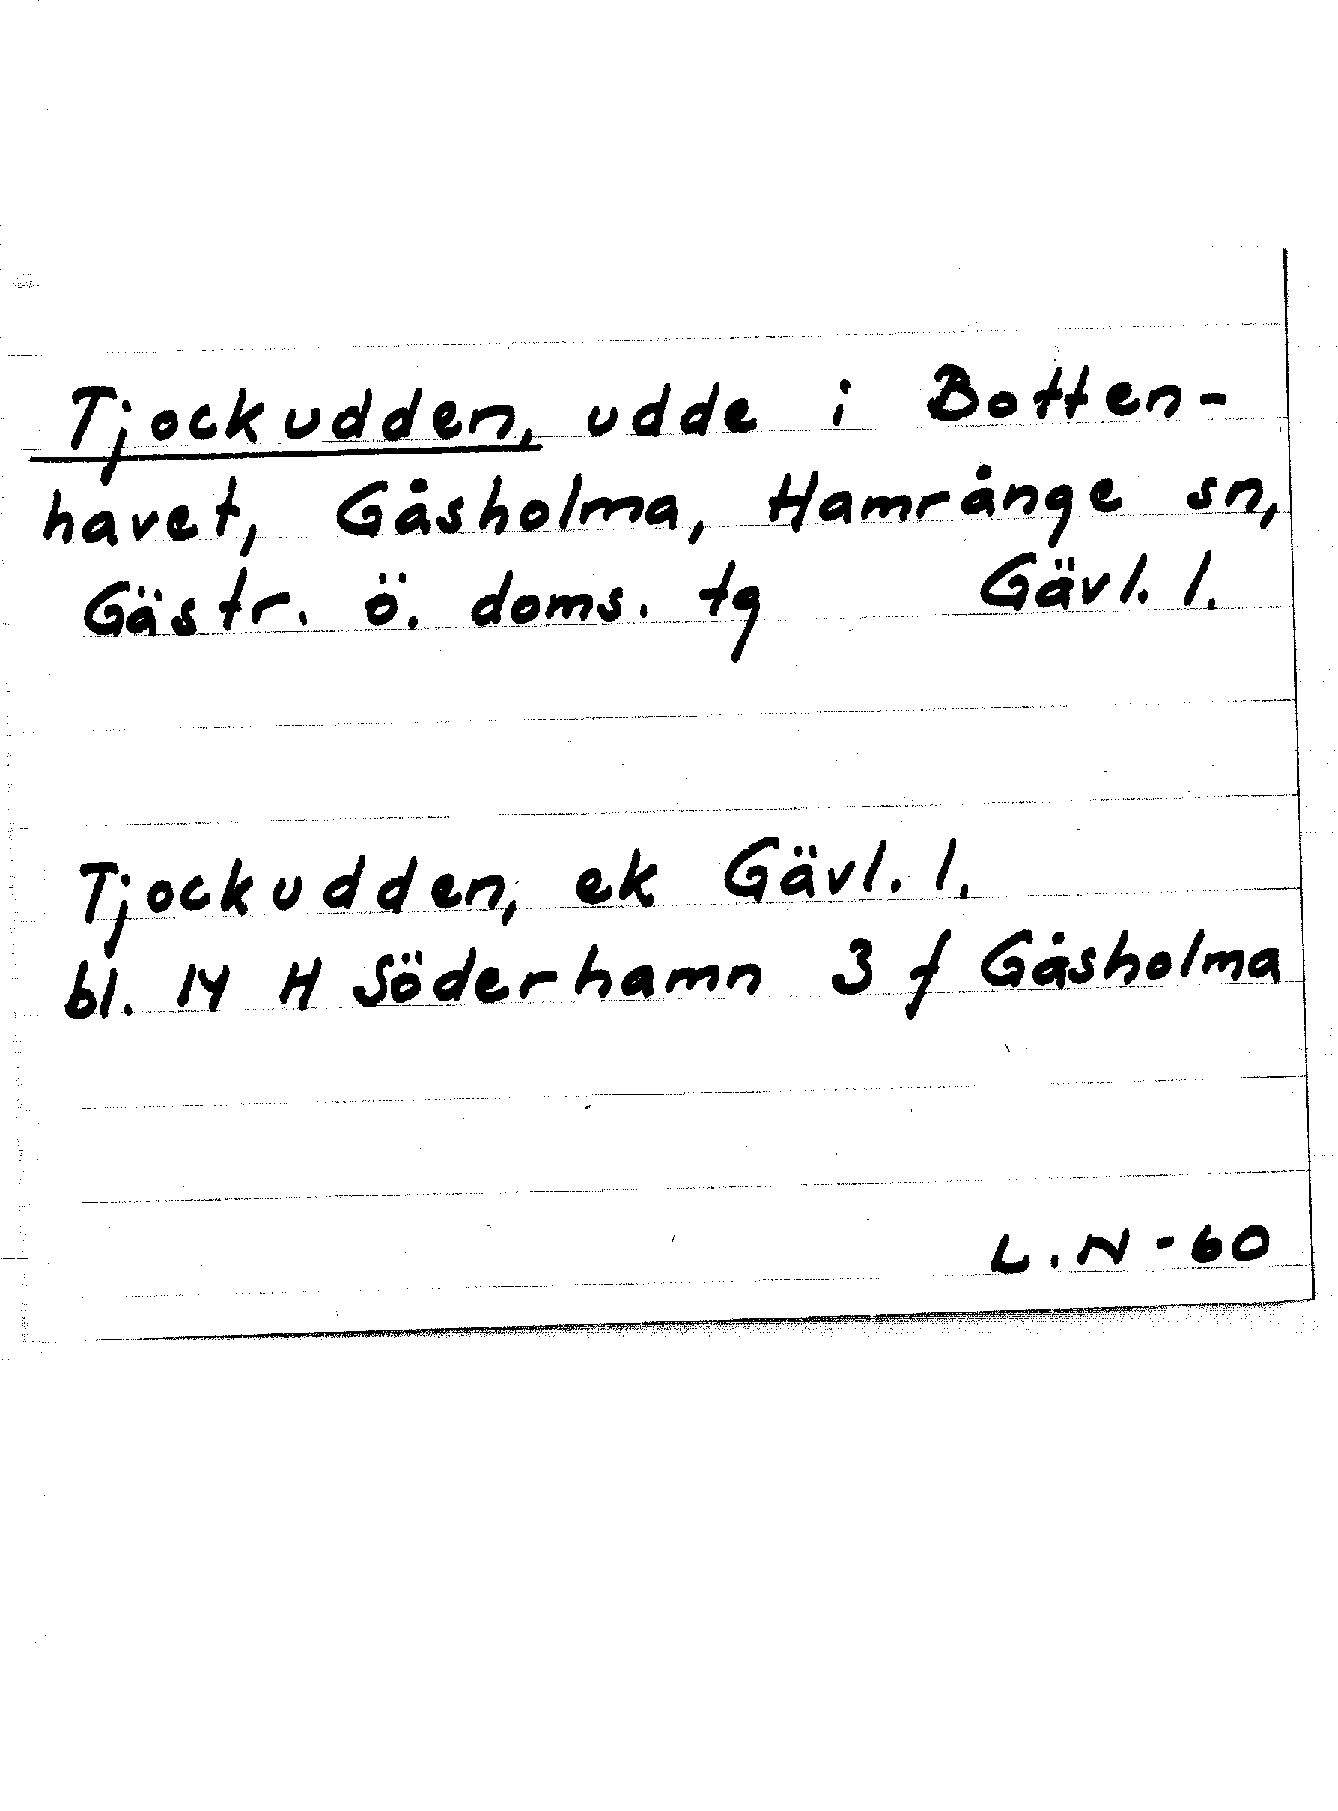 Tjockudden, udde i Botten-
havet, Gåsholma, Hamrånge sn,
Gästr. ö. doms. tg Gävl. l.
Tjockudden, ek Gävl. l.
bl. 14 H Söderhamn 3 f Gåsholma
L. N - 60